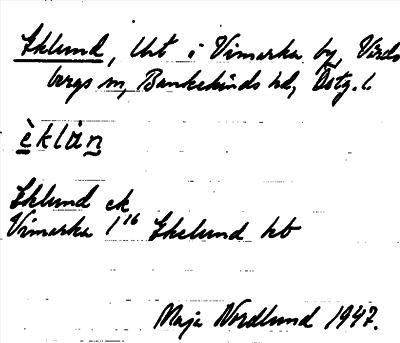 Eklund, lht i Vimarka by, Vårds
bergs sn, Bankekinds hd, Östg. l.
èklún
Eklund ek
Vimarka 1¹⁶ Ekelund kb
Maja Nordlund 1947.